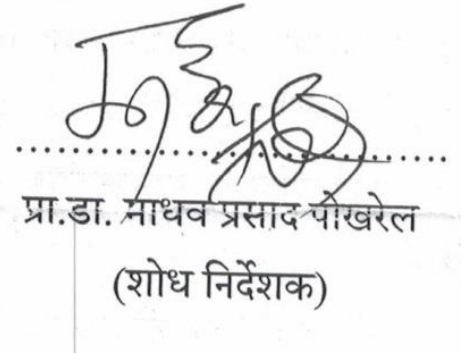 प्रा.डा. माधव प्रसाद पोखरेल
(शोध निर्देशक)